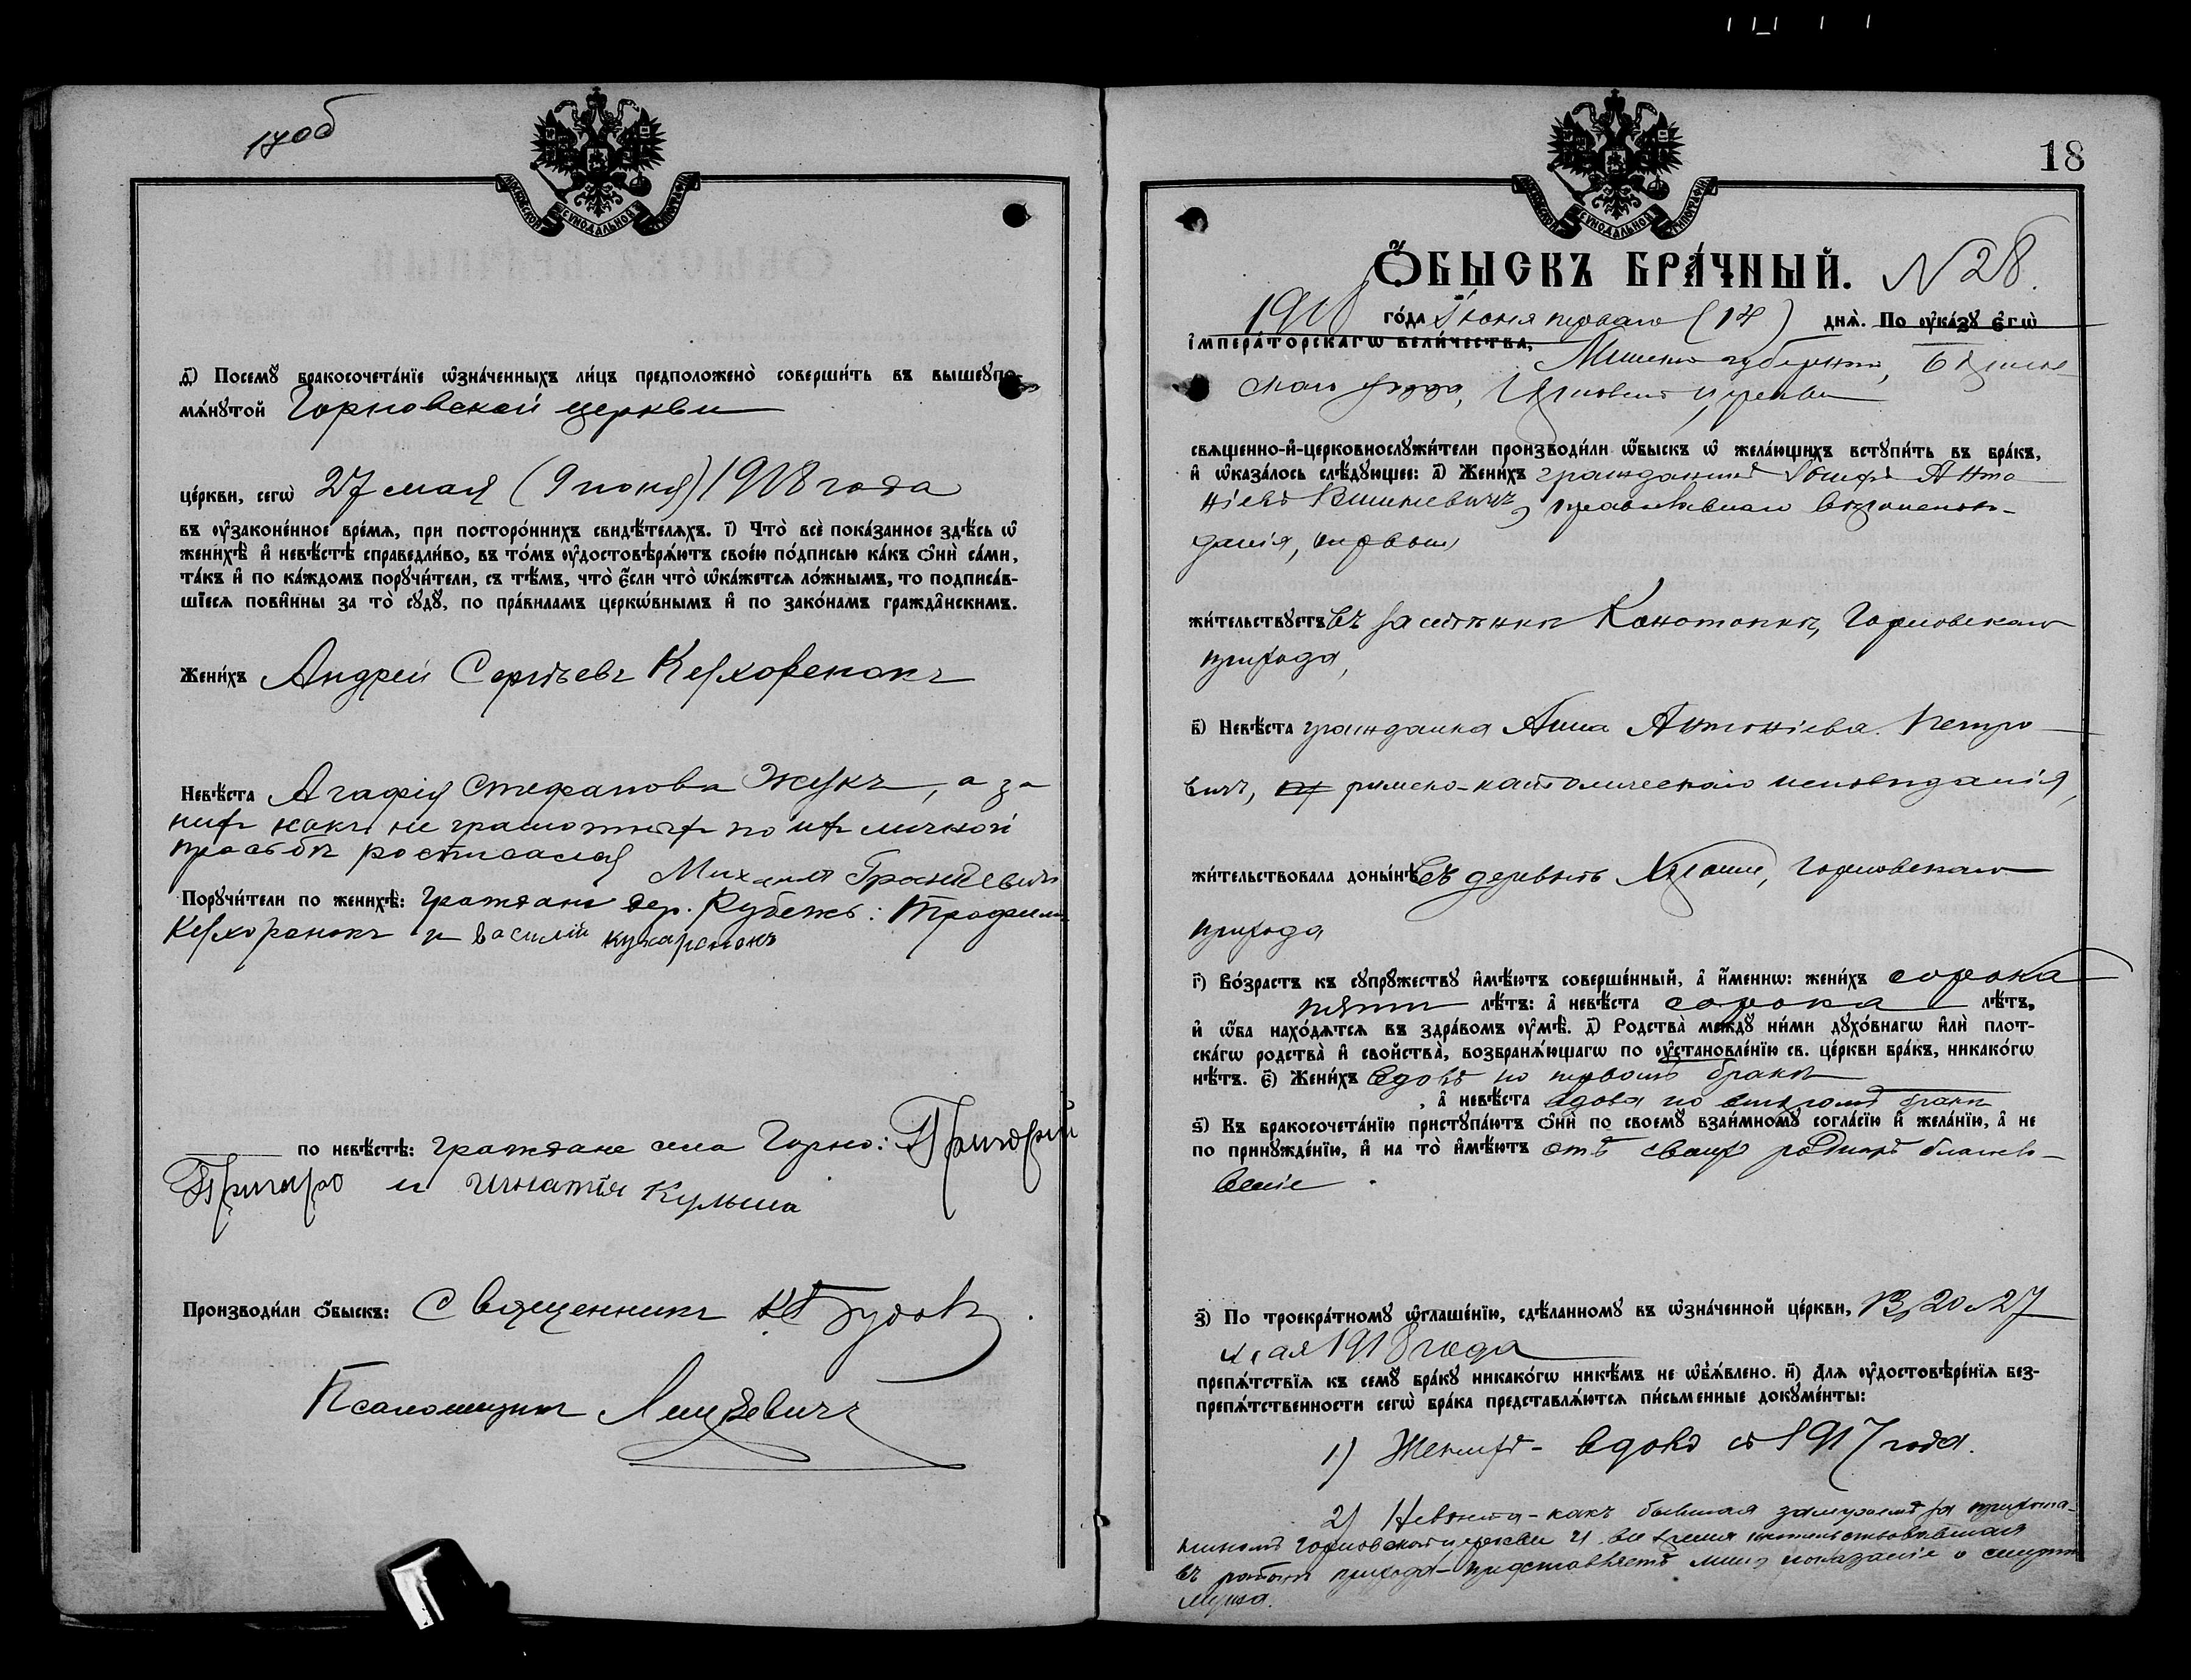 17 об
МОСКОВСКОЙ СѴНОДАЛЬНОЙ ТИПОГРАФІИ
ѳ҃) Посемꙋ бракосочета́нїе ѡ҆зна́ченныхъ ли́цъ предположено̀ соверши́ть въ вышеꙋпо-
мѧ́нꙋтой Горновской церкви
це́ркви, сегѡ̀ 27 мая (9 июня) 1918 года
въ ᲂу҆зако́ненное вре́мѧ, при посторо́ннихъ свидѣ́телѧхъ. і҃) Что̀ всѐ пока́занное здѣ́сь ѡ҆
женихѣ̀ и҆ невѣ́стѣ справедли́во, въ то́мъ ᲂу҆достовѣрѧ́ютъ свое́ю по́дписью ка́къ ѻ҆нѝ са́ми,
та́къ и҆ по ка́ждомъ порꙋчи́тели, съ тѣ́мъ, что̀ є҆́сли что̀ ѡ҆ка́жетсѧ ло́жнымъ, то подписа́в-
шїесѧ пови́нны за то̀ сꙋдꙋ̀, по пра́виламъ церкѡ́внымъ и҆ по зако́намъ гражда́нскимъ.
Жени́хъ Андрей Сергѣевъ Кухоренокъ
Невѣ́ста Агафія Стефанова Жукъ, а за
них какъ не грамотныхъ по их личной
просьбѣ росписался Михаилъ
Порꙋчи́тели по женихѣ̀: Граждане дер. Рубежъ: Трофимъ
Кухоренокъ и Василій Кухаренокъ
по невѣ́стѣ: граждане села Горно: Григорий
Григоро и Игнатія Кульша
Производи́ли ѻ҆́быскъ: Священникъ
Псаломщикъ
18
МОСКОВСКОЙ СѴНОДАЛЬНОЙ ТИПОГРАФІИ
Ѻ҆́БЫСКЪ БРА́ЧНЫЙ. N 28.
1918 го́да Іюня перваго (14) днѧ̀. По ᲂу҆ка́зꙋ є҆гѡ̀
і҆мпера́торскагѡ вели́чества, Минской губерніи,
скаго уѣзда, Горновской церкви
свѧщенно-и҆-церковнослꙋжи́тели производи́ли ѡ҆́быскъ ѡ҆ жела́ющихъ встꙋпи́ть въ бра́къ,
и҆ ѡ҆каза́лось слѣ́дꙋющее: а҃) Жени́хъ гражданинъ Іосифъ Анто
ніевъ православнаго вѣроисповѣ-
данія, первый
жи́тельствꙋетъ въ застѣнкѣ Конотопкѣ, Горновскаго
прихода,
в҃) Невѣ́ста гражданка Анна Антоніева Петро-
вичъ, римско-католическаго исповѣданія,
жи́тельствовала доны́нѣ въ деревнѣ Горновскаго
прихода
г҃) Во́зрастъ къ сꙋпрꙋ́жествꙋ и҆мѣ́ютъ соверше́нный, а҆ и҆́меннѡ: жени́хъ сорока
пяти лѣ́тъ: а҆ невѣ́ста сорока лѣ́тъ,
и҆ ѡ҆́ба нахо́дѧтсѧ въ здра́вомъ ᲂу҆мѣ̀. д҃) Родства̀ междꙋ ни́ми дꙋхо́внагѡ и҆лѝ плот-
ска́гѡ родства̀ и҆ свойства̀, возбранѧ́ющагѡ по ᲂу҆становле́нїю св. це́ркви бра́къ, никако́гѡ
нѣ́тъ. є҃) Жени́хъ вдовъ по первомъ бракѣ
, а҆ невѣ́ста вдова по второмъ бракѣ
ѕ҃) Къ бракосочета́нїю пристꙋпа́ютъ ѻ҆нѝ по своемꙋ̀ взаи́мномꙋ согла́сїю и҆ жела́нїю, а҆ не
по принꙋжде́нїю, и҆ на то̀ и҆мѣ́ютъ отъ своихъ родныхъ благосло-
веніе.
з҃) По троекра́тномꙋ ѡ҆глаше́нїю, сдѣ́ланномꙋ въ ѡ҆зна́ченной це́ркви, 13, 20 и 27
мая 1918 года
препѧ́тствїѧ къ семꙋ̀ бра́кꙋ никако́гѡ никѣ́мъ не ѡ҆б̾ѧ́влено. и҃) Длѧ ᲂу҆достовѣре́нїѧ без-
препѧ́тственности сегѡ̀ бра́ка представлѧ́ютсѧ пи́сьменные докꙋме́нты:
1) Женихъ - вдовъ съ 1917 года.
2) Невѣста - какъ бывшая замужемъ за прихожа-
ниномъ Горновской церкви и все время жительствовавшая
въ районѣ прихода - представляетъ лично показаніе о смерти
мужа.